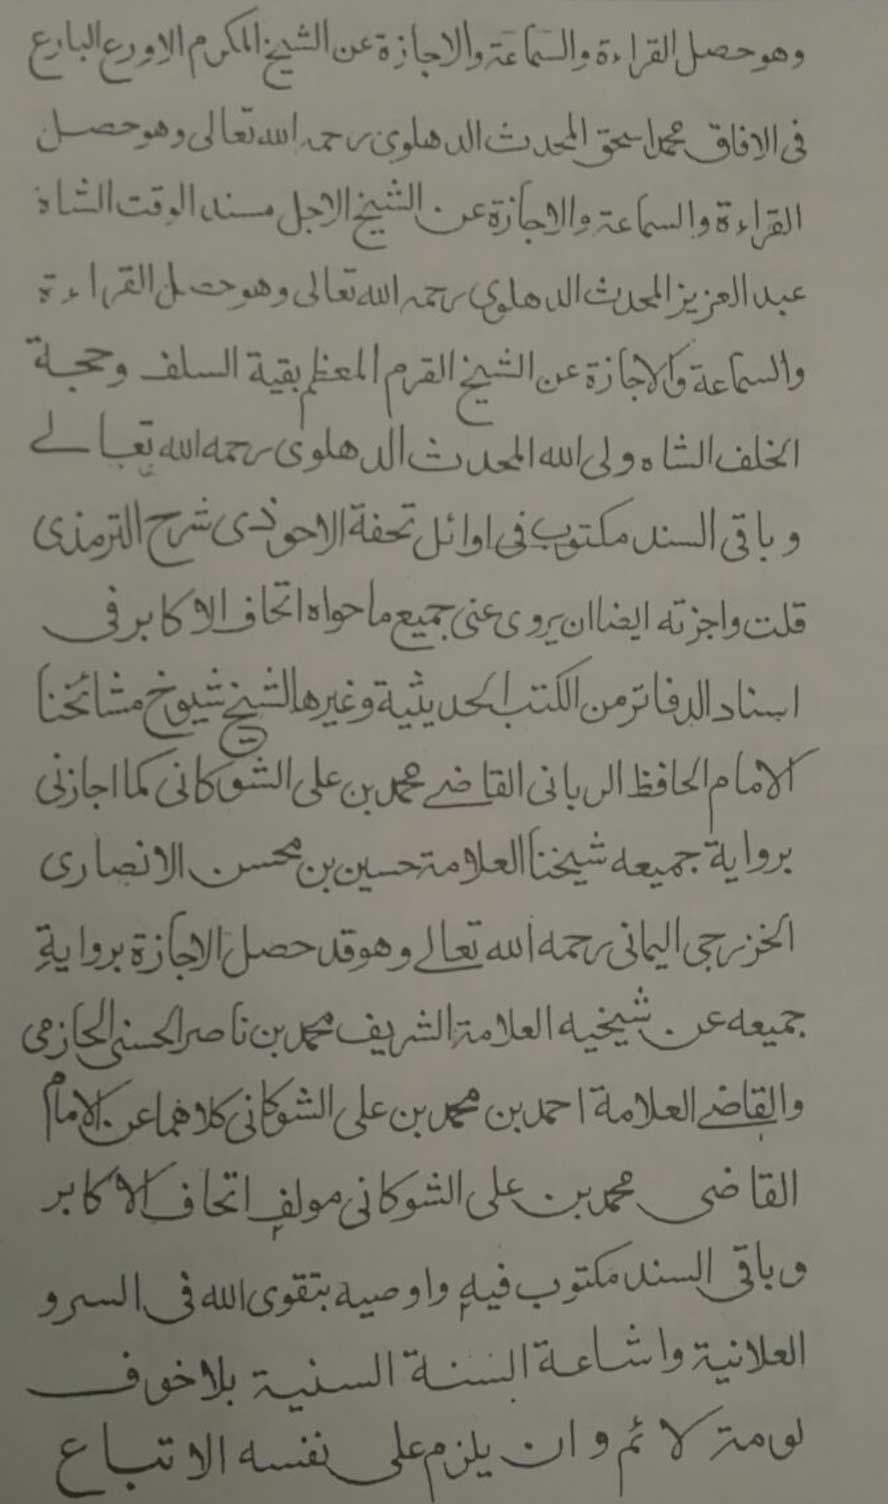 وهو حصل القراءة والسماعة والاجازة عن الشيخ المكرم الاورع البارع
فى الافاق محمد اسحق المحدث الدهلوى رحمه الله تعالى وهو حصل
القراءة والسماعة والاجازة عن الشيخ الاجل مسند الوقت الشاه
عبد العزيز المحدث الدهلوى رحمه الله تعالى وهو حصل القراءة
والسماعة والاجازة عن الشيخ القرم المعظم بقية السلف وحجة
الخلف الشاه ولى الله المحدث الدهلوى رحمه الله تعالے
وباقى السند مكتوب فى اوائل تحفة الاحوذى شرح الترمذى
قلت واجزته ايضا ان يروى عنى جميع ما حواه اتحاف الاكابر فى
اسناد الدفاتر من الكتب الحديثية وغيرها لشيخ شيوخ مشائخنا
الامام الحافظ الربانى القاضے محمد بن على الشوكانى كما اجازنى
برواية جميعه شيخنا العلامة حسين بن محسن الانصارى
الخزرجى اليمانى رحمه الله تعالے وهو قد حصل الاجازة برواية
جميعه عن شيخيه العلامة الشريف محمد بن ناصر الحسنى الحازمى
والقاضے العلامة احمد بن محمد بن على الشوكانى كلاهما عن الامام
القاضى محمد بن على الشوكانى مولف اتحاف الاكابر
وباقى السند مكتوب فيه واوصيه بتقوى الله فى السر و
العلانية واشاعة السنة السنية بلا خوف
لومة لائم وان يلزم على نفسه الاتباع